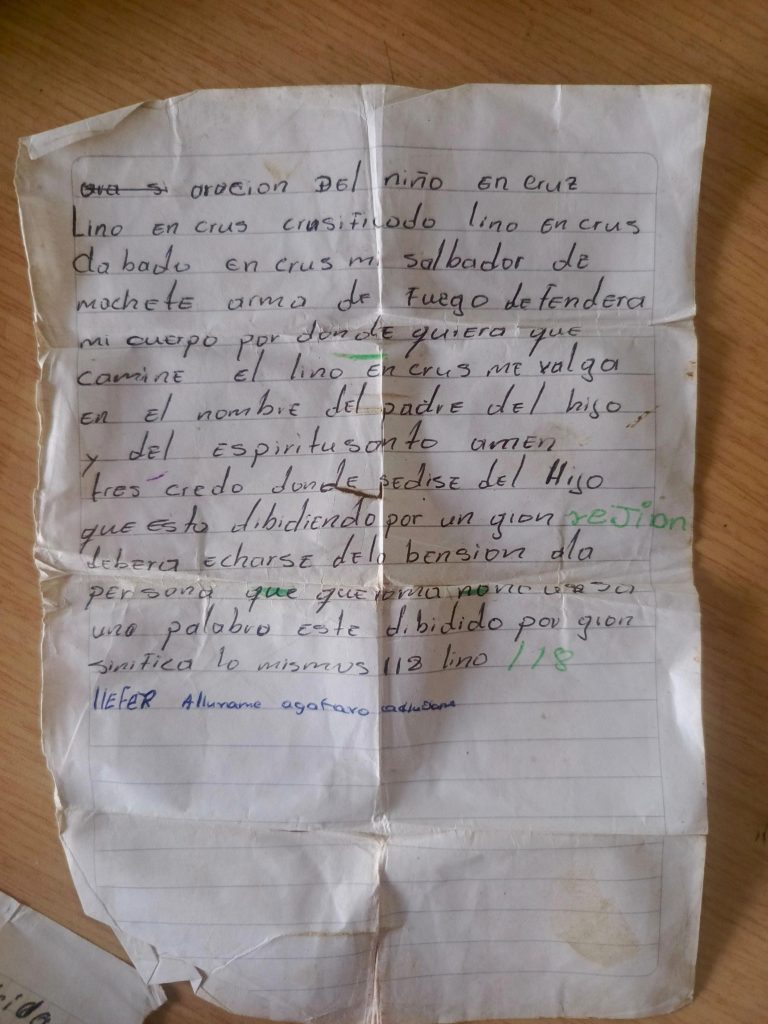 ora si oracion DEl niño En cruz
Lino En crus crusificado lino En crus
Clabado En crus mi salbador de
mochete arma de Fuego defendera
mi cuerpo por donde quiera que
camine El lino En crus me valga
En El nombre del padre del hijo
y del Espiritusanto amen
tres credo donde pedise del Hijo
que esta dibidiendo por un gion reJion
debera echarse dela bension ala
persona que
una palabra este dibidido por gion
sinifica lo mismus 118 lino 118
llEFER Alluname
cide